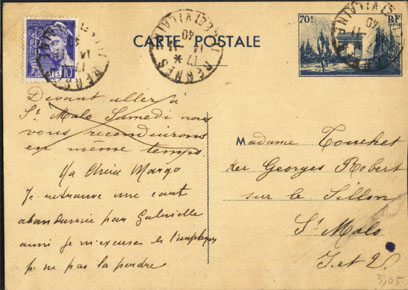 CARTE POSTALE
70f RF
RENNES
17
11
40
ILLE-ET-VILAINE
Devant aller à
St Malo Samedi nous
vous reconduirons
en même temps.
Ma Chère Margo
Je retrouve une carte
abandonnée par Gabrielle
aussi je m'excuse et l'emploie
p. ne pas la perdre
Madame Touchet
Ker Georges Robert
sur le Sillon
St Malo
I. et V.
3,05